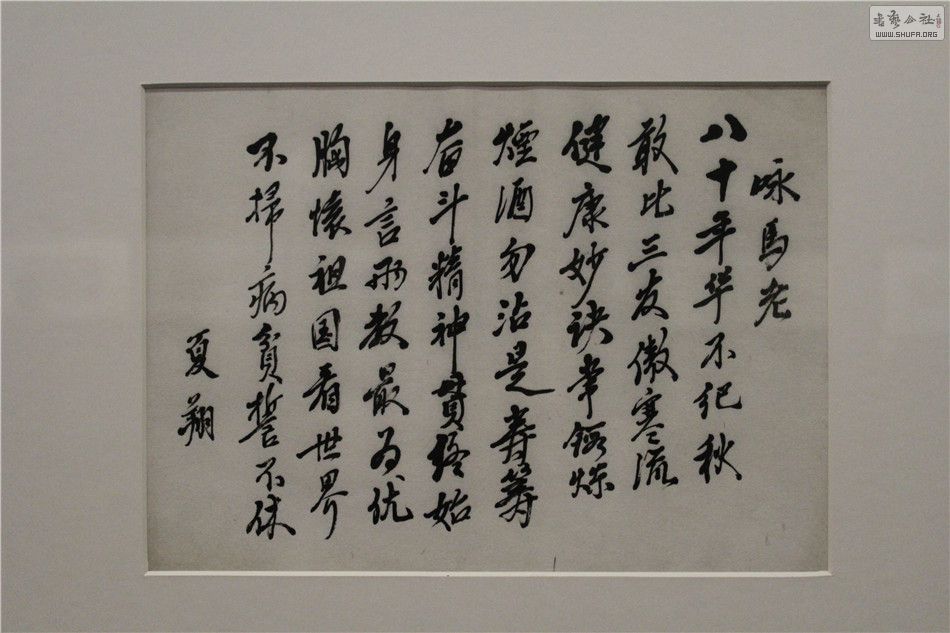 咏马老
八十年华不纪秋
敢比三友傲寒流
健康妙诀常锻炼
煙酒勿沾是寿筹
奋斗精神贯终始
身言形教最为优
胸懷祖国看世界
不掃病貧誓不休
夏翔
書藝公社
WWW.SHUFA.ORG